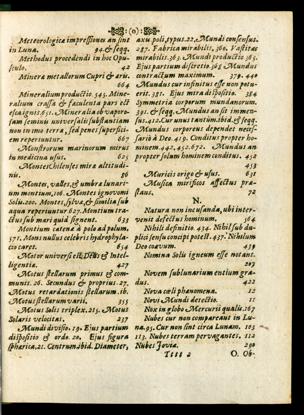 (o)
Meteorologica impressiones an sint
in Luna. 94. & seqq.
Methodus procedendi in hoc Opu-
sculo. 42
Minera metallorum Cupri & aru.
664
Mineralium productio. 545. Mine-
ralium crassa & faculenta pars est
esca ignis. 651. Mineralia ab vapore-
sum semine universali substantiam
non in imo terra, sed penes superfici-
em reperiuntur. 667
Monstrorum marinorum mirus
in medicina usus. 625
Montes Chilenses mira altitudi-
nis. 96
Montes, valles, & umbra lunari-
um montium, 26. Montes ignovomi
Solis. 200. Montes, sylva, & similia sub
aqua reperiuntur. 627. Montium tra-
ctus sub mari quid signent. 635
Montium catena à polo ad polum,
577. Mons nullus celebris hydrophyla-
cio caret. 654
Motor universi est Deus & Intel-
ligentia. 427
Motus stellarum primus & com-
munis. 26. Secundus & proprius. 27.
Motus retardationis stellarum. ib.
Motus stellarum varii. 355
Motus Solis triplex. 215. Motus
Solaris velocitas. 237
Mundi divisio. 19. Ejus partium
dispositio & ordo. 20. Ejus figura
spharica. 21. Centrum ibid. Diameter,
axis, poli, typus. 22. Mundi consensus.
287. Fabrica mirabilis, 360. Vastitas
mirabilis. 363. Mundi productio. 365.
Ejus partium distretio. 365. Mundus
contractum maximum. 379. 440
Mundus cur infinitus esse non potu-
erit. 381. Ejus mira dispositio. 384
Symmetria corporum mundanorum.
391. & seqq. Mundus an sit immen-
sus. 412. Cur unus tantum. ibid. & seqq.
Mundus corporeus dependet neces-
sariò à Deo. 419. Conditus propter ho-
minem. 442. 452. 672. Mundus an
propter solum hominem conditus. 452
453
Muriatici origo & usus. 631
Musica mirificos affectus pra-
stans. 72
N.
Natura non incusanda, ubi inter-
venit defectus hominum. 564
Nihili definitio. 434. Nihil sub du-
plici sensu concipi potest. 437. Nihilum
Deo coævum. 439
Nomina Solis igneum esse notant.
203
Novem sublunarium entium gra-
dus. 422
Nova cœli phænomena. 12
Novi Mundi detectio. 11
Nox in globo Mercurii qualis. 167
Nubes cur non compareant in Lu-
na. 95. Cur non sint circa Lunam. 103
113. Nubes terram pervagantes, 112
Nubes Jovia. 290
Tttt 2
O. Ob-